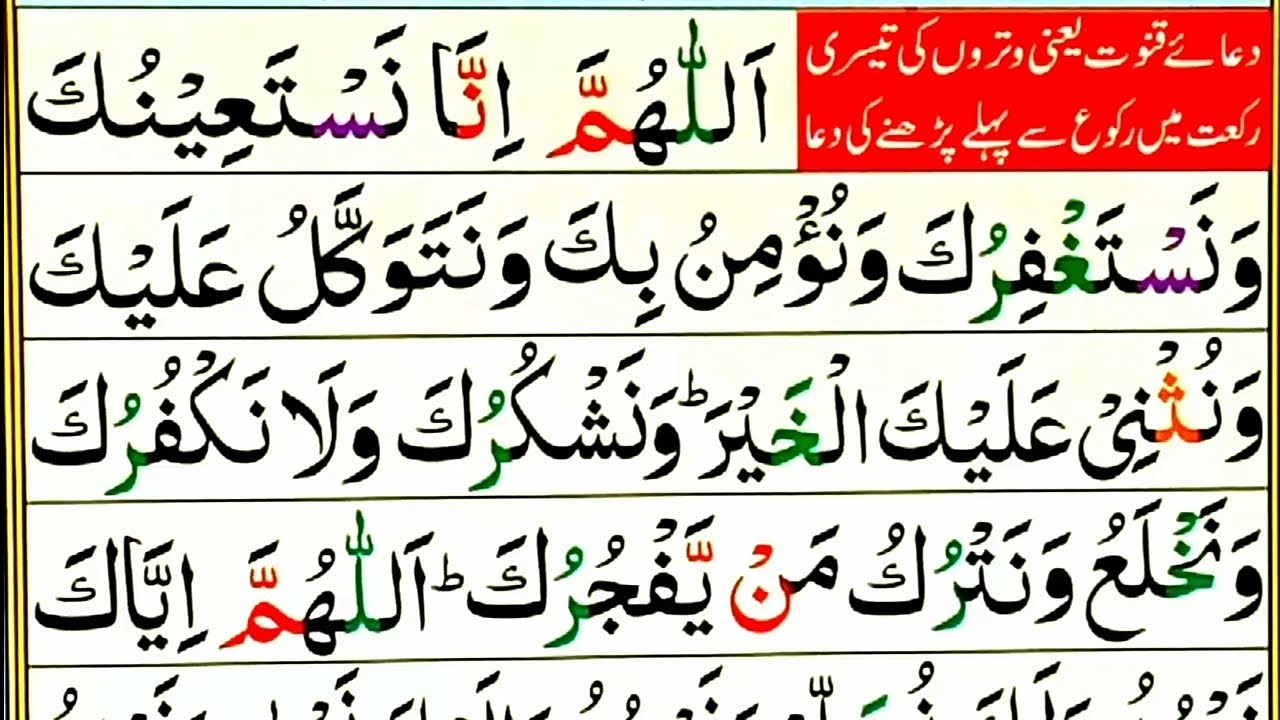 دعائے قنوت یعنی وتروں کی تیسری
رکعت میں رکوع سے پہلے پڑھنے کی دعا
اَللّٰهُمَّ اِنَّا نَسْتَعِيْنُكَ
وَنَسْتَغْفِرُكَ وَنُؤْمِنُ بِكَ وَنَتَوَكَّلُ عَلَيْكَ
وَنُثْنِيْ عَلَيْكَ الْخَيْرَ ؕ وَنَشْكُرُكَ وَلَا نَكْفُرُكَ
وَنَخْلَعُ وَنَتْرُكُ مَنْ يَّفْجُرُكَ ؕ اَللّٰهُمَّ اِيَّاكَ